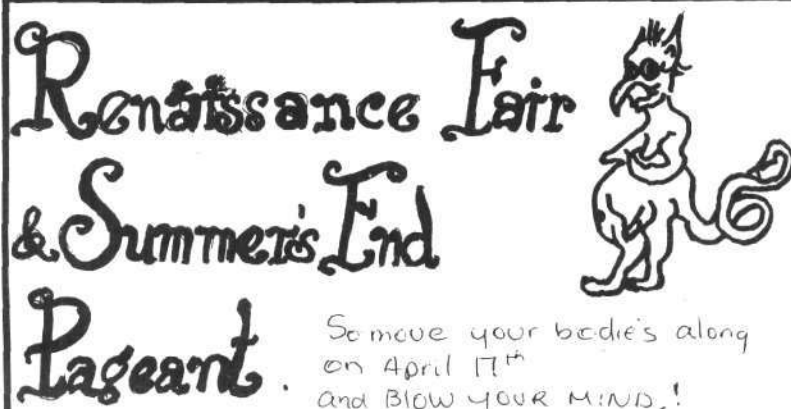 Renaissance Fair
& Summer's End
Pageant.
So move your bodie's along
on April 17th
and BLOW YOUR MIND.!